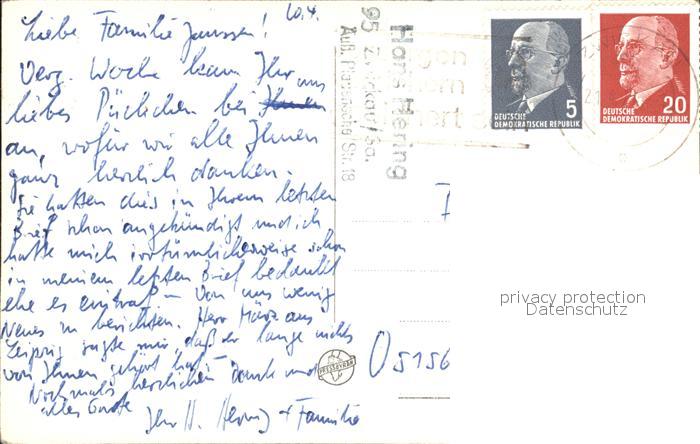 10.4.
Liebe Familie Janssen!
Verg. Woche kam Ihr uns
liebes Päckchen bei
an, wofür wir alle Ihnen
ganz herzlich danken.
Sie hatten dies in Ihrem letzten
Brief schon angekündigt und ich
hatte mich irrtümlicherweise schon
in meinem letzten Brief bedankt
ehe es eintraf – Von uns wenig
Neues zu berichten. Herr März aus
Leipzig sagte mir daß er lange nichts
von Ihnen gehört hat
Nochmals herzlichen Dank und
alles Gute
Ihr H. Hering + Familie
Hans Hering
95 Zwickau/Sa.
Auß. Planitzsche Str. 18
DEUTSCHE
DEMOKRATISCHE REPUBLIK
5
DEUTSCHE
DEMOKRATISCHE REPUBLIK
20
O 5156
privacy protection
Datenschutz